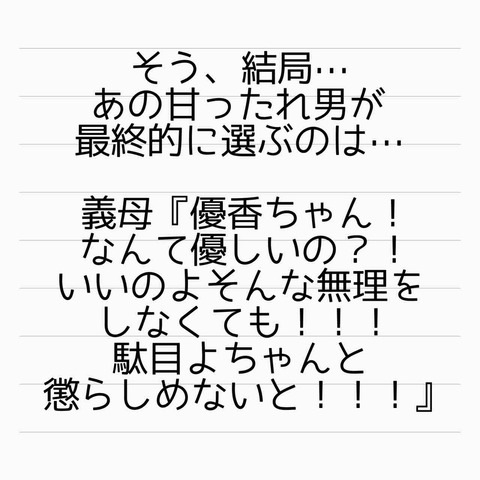 そう、結局…
あの甘ったれ男が
最終的に選ぶのは…
義母『優香ちゃん！
なんて優しいの？！
いいのよそんな無理を
しなくても！！！
駄目よちゃんと
懲らしめないと！！！』